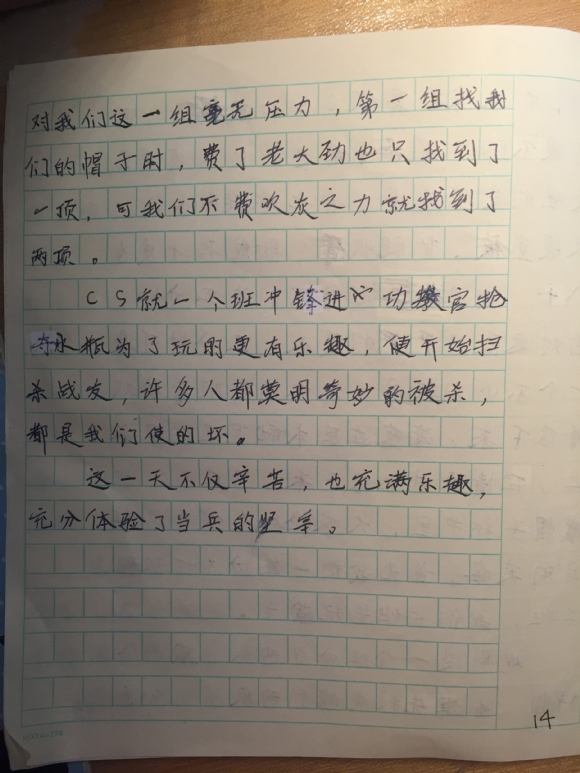 对我们这一组毫无压力，第一组找我
们的帽子时，费了老大劲也只找到了
一顶，可我们不费吹灰之力就找到了
两顶。
CS就一个班冲锋进 功 官抢
夺水瓶为了玩的更有乐趣，便开始扫
杀战友，许多人都莫明奇妙的被杀，
都是我们使的坏。
这一天不仅辛苦，也充满乐趣，
充分体验了当兵的坚辛。
14